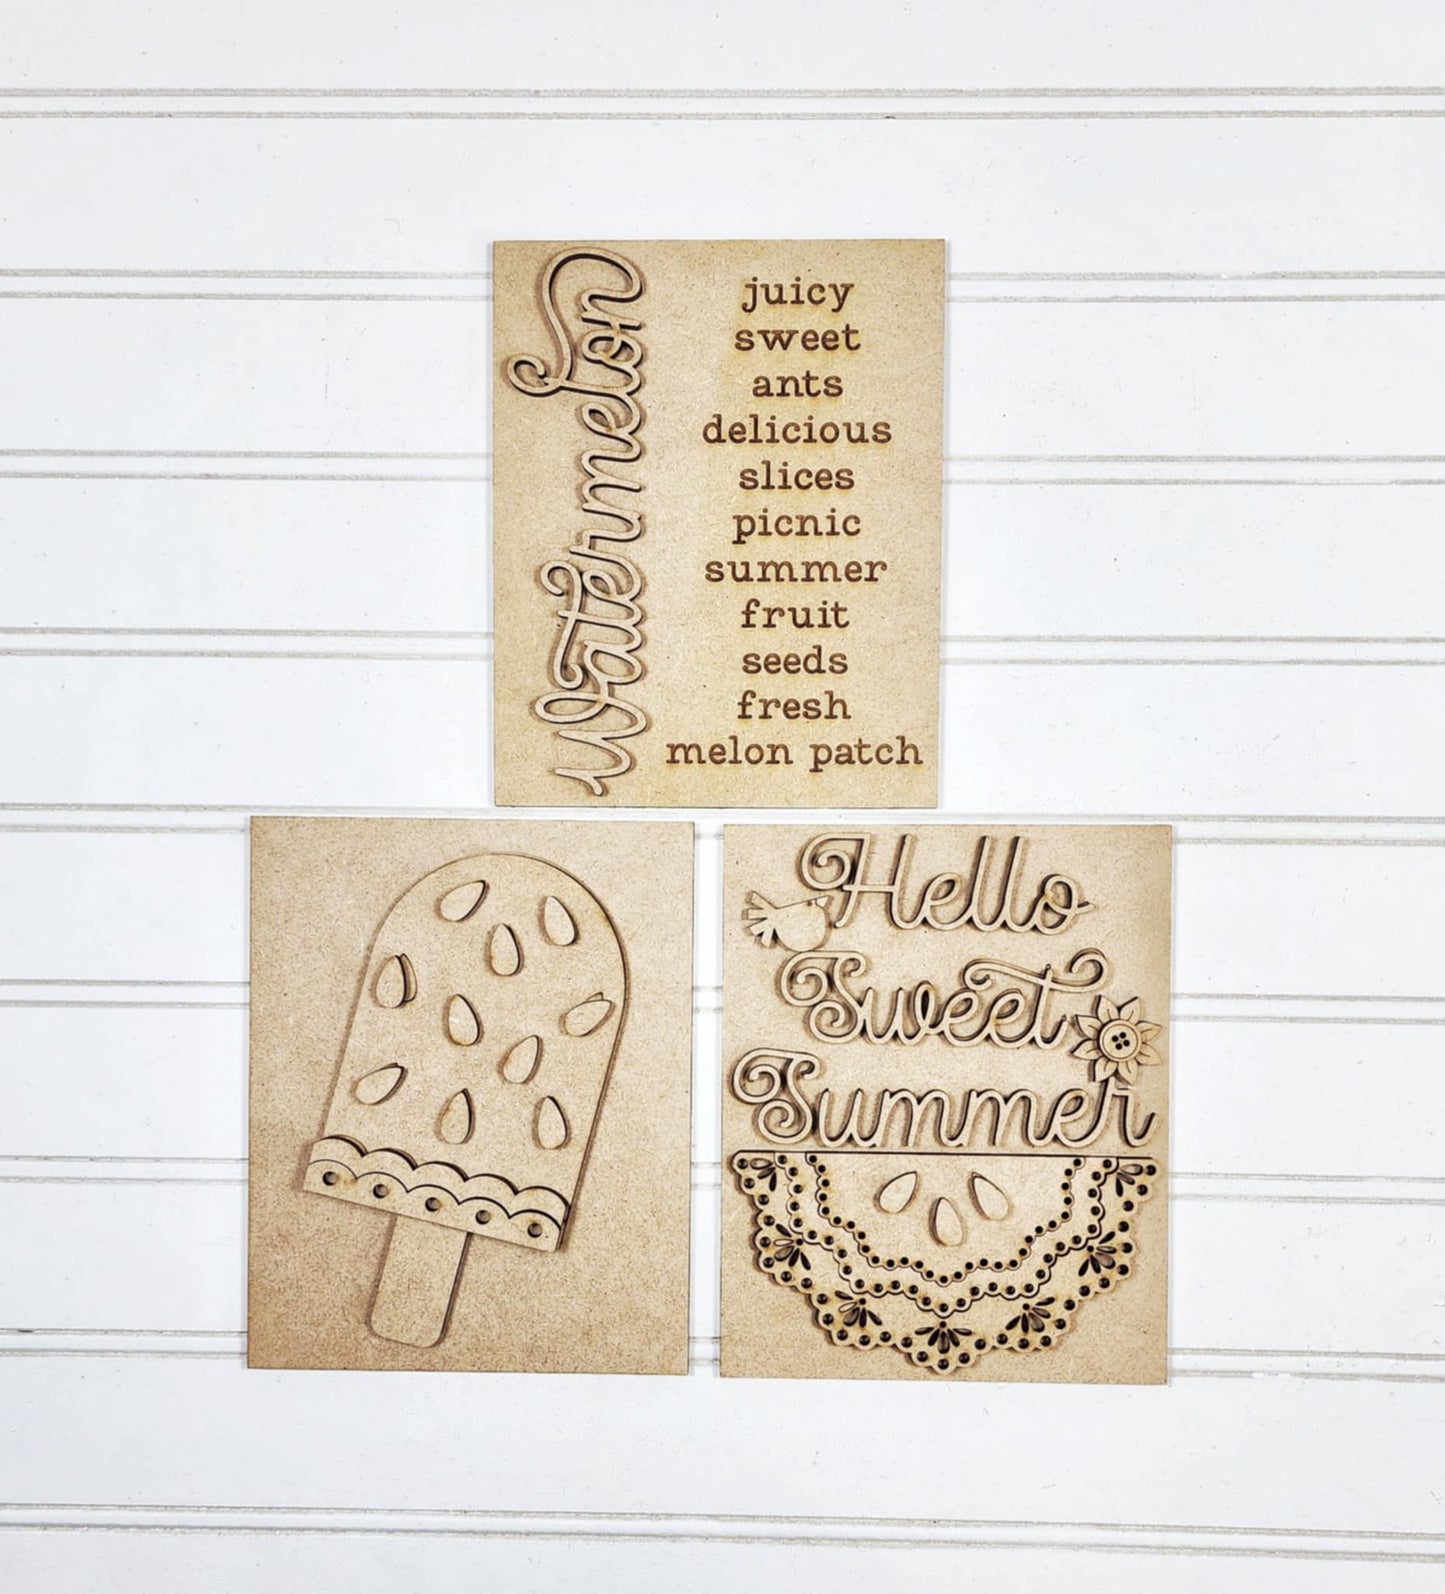 Watermelon
juicy
sweet
ants
delicious
slices
picnic
summer
fruit
seeds
fresh
melon patch
Hello
Sweet
Summer